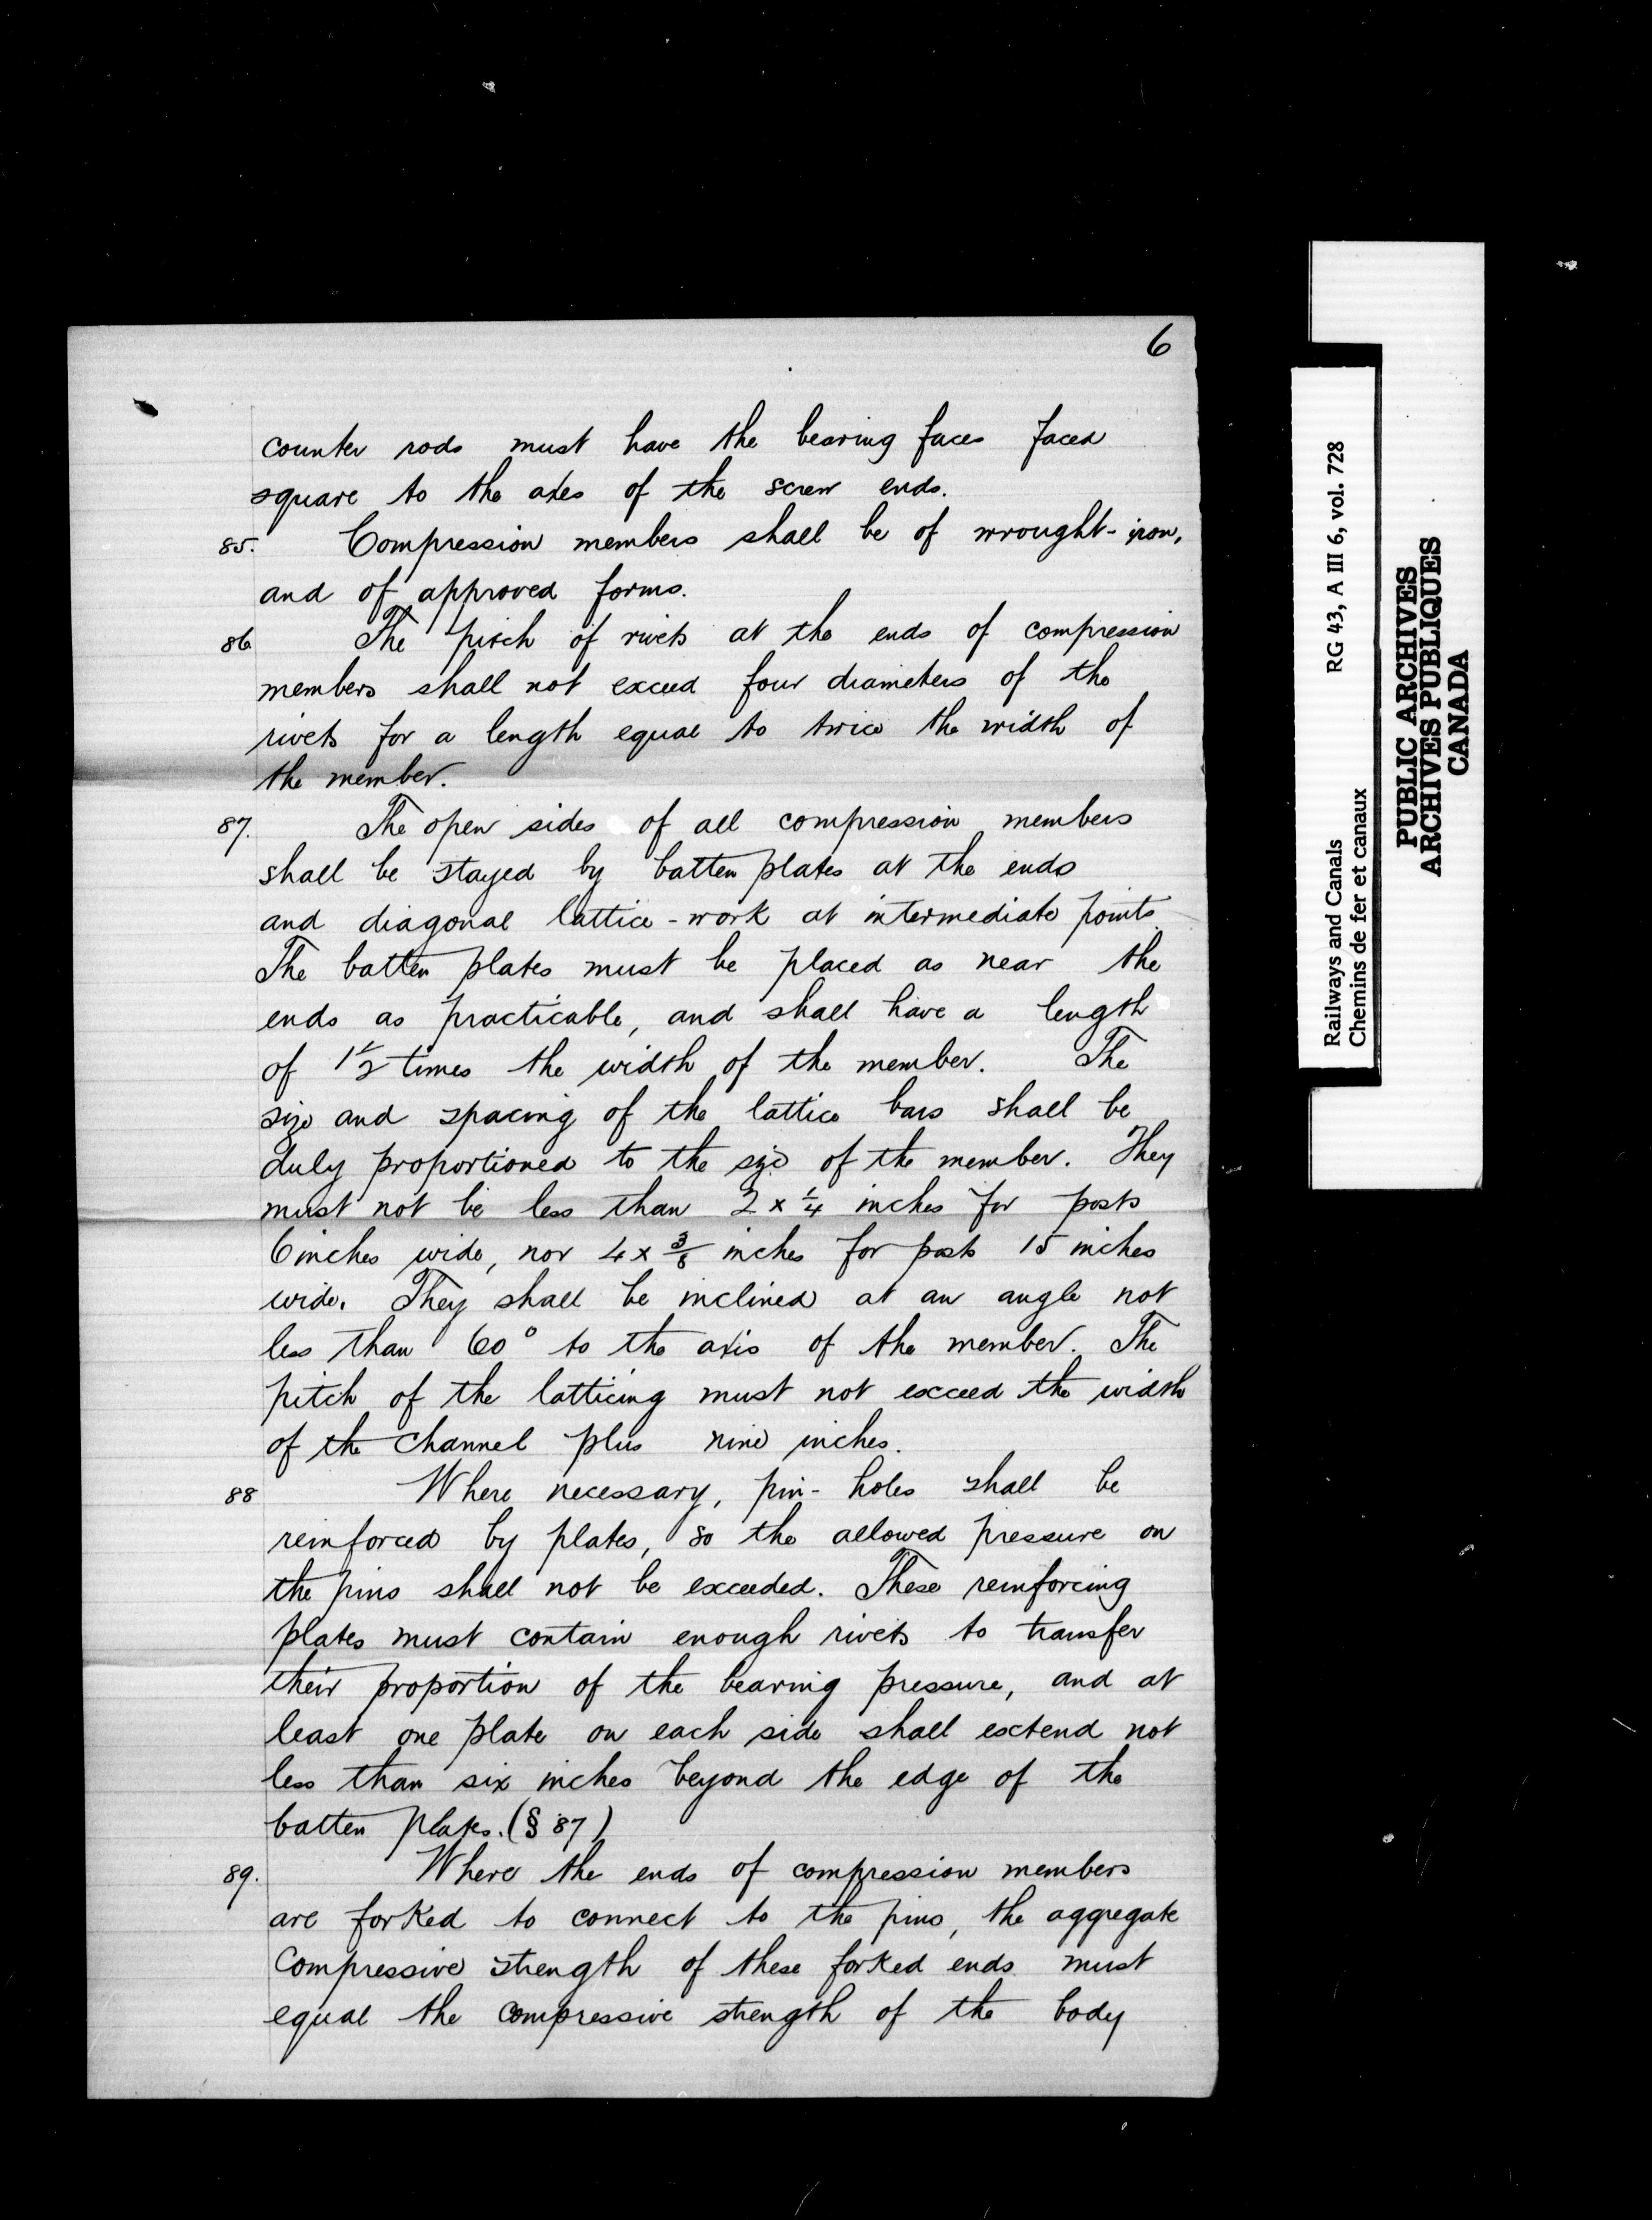 6
counter rods must have the bearing faces faced
square to the axes of the screw ends.
85. Compression members shall be of wrought-iron,
and of approved forms.
86 The pitch of rivets at the ends of compression
members shall not exceed four diameters of the
rivets for a length equal to twice the width of
the member.
87. The open sides of all compression members
shall be stayed by batten plates at the ends
and diagonal lattice-work at intermediate points.
The batten plates must be placed as near the
ends as practicable, and shall have a length
of 1½ times the width of the member. The
size and spacing of the lattice bars shall be
duly proportioned to the size of the member. They
must not be less than 2 x ¼ inches for posts
6 inches wide, nor 4 x ⅜ inches for posts 15 inches
wide. They shall be inclined at an angle not
less than 60° to the axis of the member. The
pitch of the latticing must not exceed the width
of the channel plus nine inches.
88 Where necessary, pin-holes shall be
reinforced by plates, so the allowed pressure on
the pins shall not be exceeded. These reinforcing
plates must contain enough rivets to transfer
their proportion of the bearing pressure, and at
least one plate on each side shall extend not
less than six inches beyond the edge of the
batten plates. (§ 87)
89. Where the ends of compression members
are forked to connect to the pins, the aggregate
compressive strength of these forked ends must
equal the compressive strength of the body
Railways and Canals RG 43, A III 6, vol. 728
Chemins de fer et canaux
PUBLIC ARCHIVES
ARCHIVES PUBLIQUES
CANADA